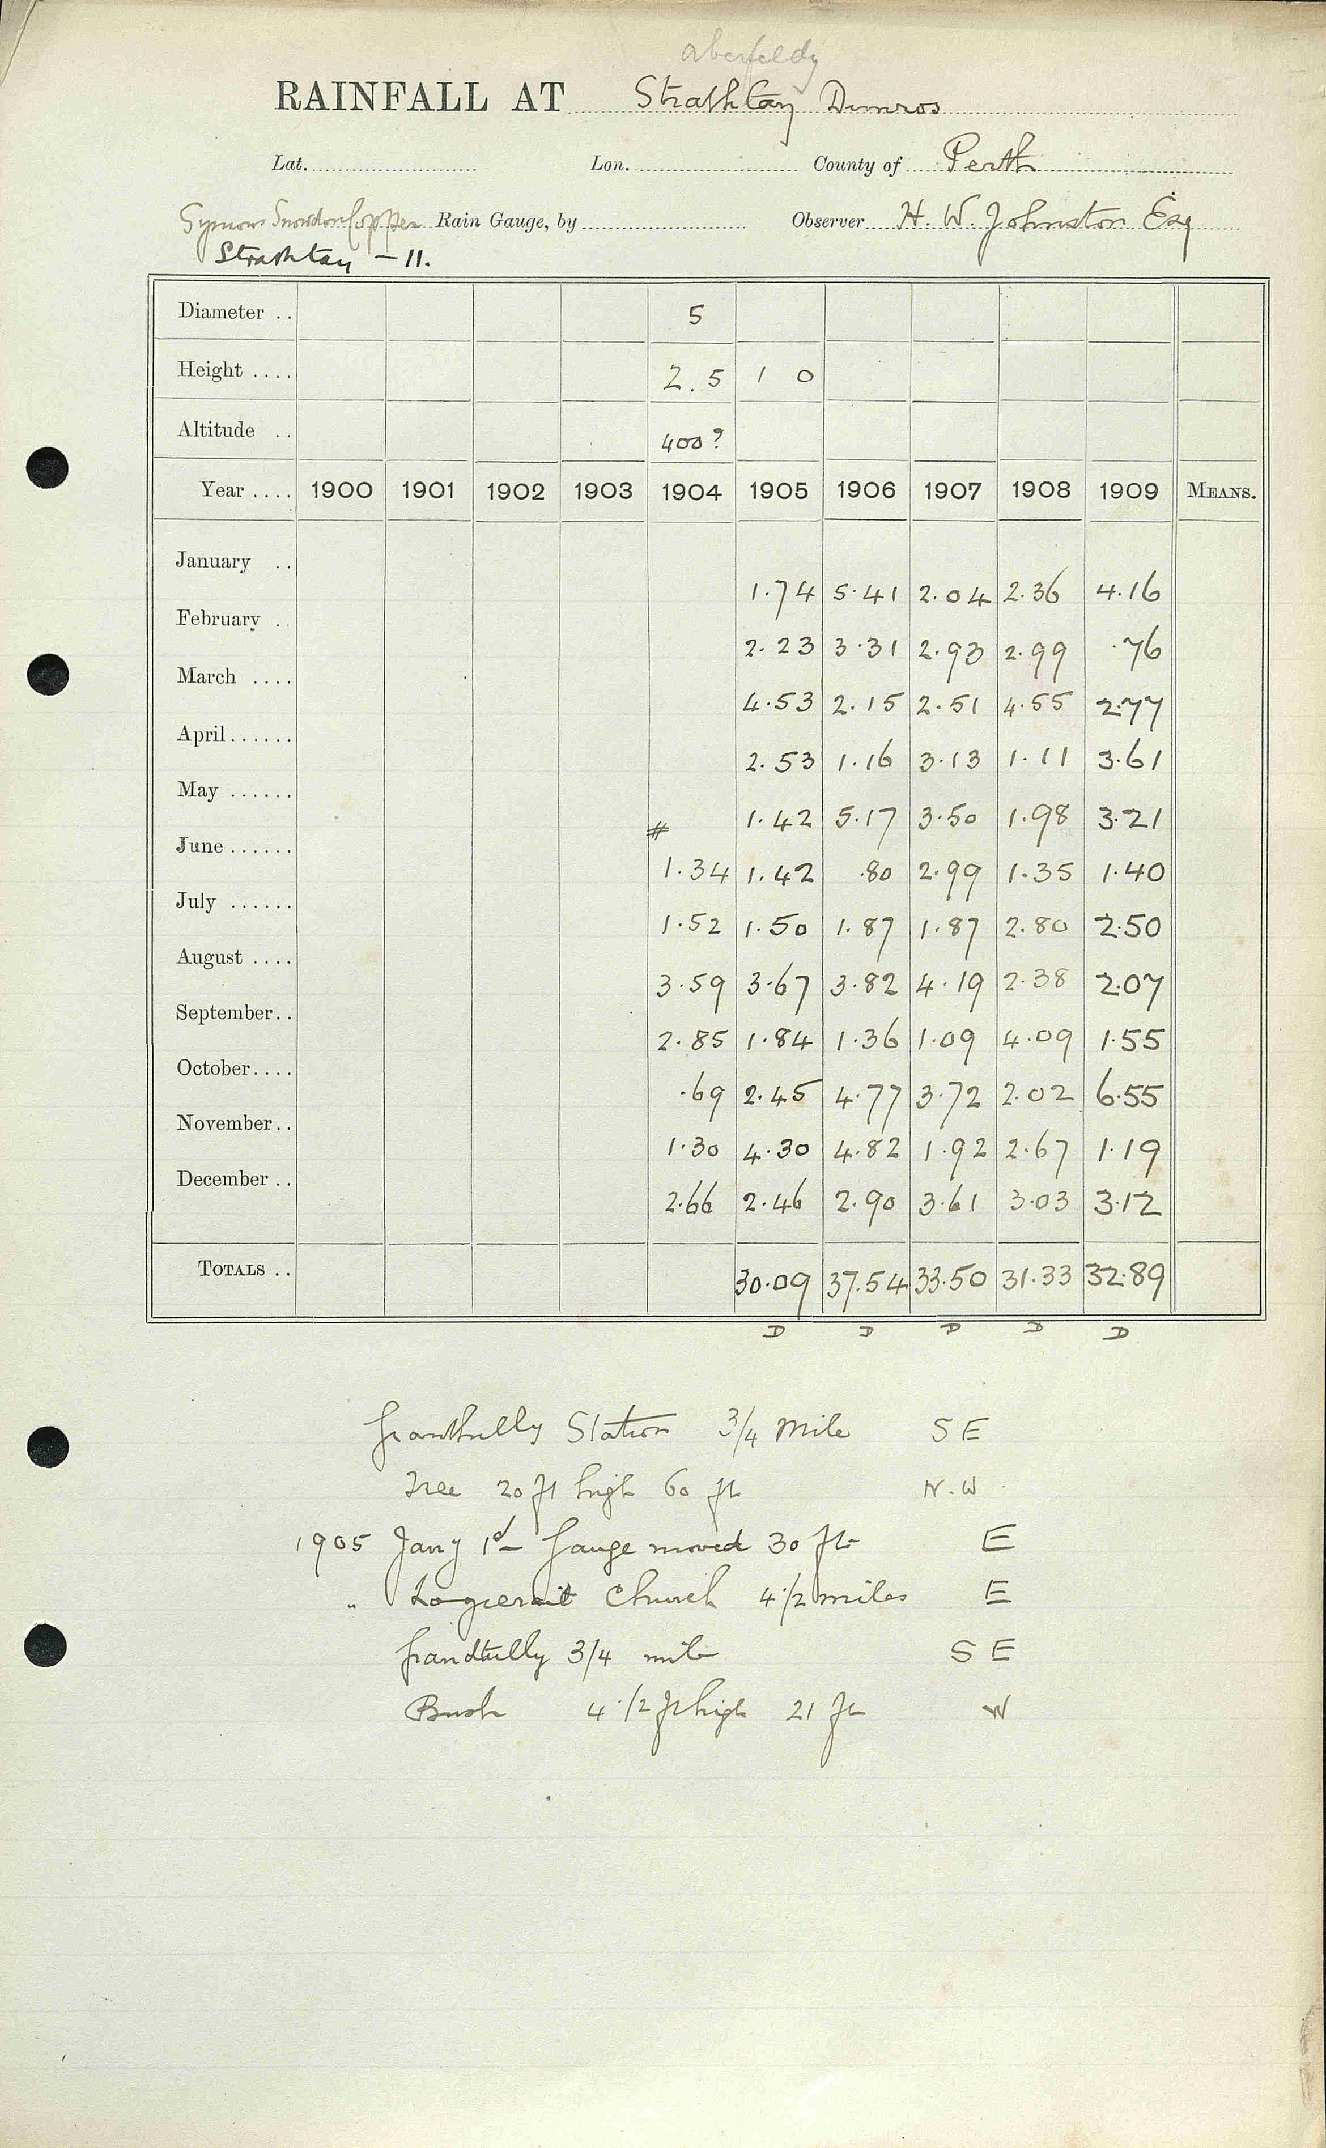 Aberfeldy
RAINFALL AT Strathtay Dunros
Lat. Lon. County of Perth
Symons Snowdon Copper Rain Gauge, by Observer H. W. Johnston Esq
Strathtay - 11.
Diameter .. 5
Height .... 2.5 1 0
Altitude .. 400?
Year .... 1900 1901 1902 1903 1904 1905 1906 1907 1908 1909 MEANS.
January .. 1.74 5.41 2.04 2.36 4.16
February . 2.23 3.31 2.93 2.99 .76
March .... 4.53 2.15 2.51 4.55 2.77
April...... 2.53 1.16 3.13 1.11 3.61
May ...... # 1.42 5.17 3.50 1.98 3.21
June ...... 1.34 1.42 .80 2.99 1.35 1.40
July ...... 1.52 1.50 1.87 1.87 2.80 2.50
August .... 3.59 3.67 3.82 4.19 2.38 2.07
September.. 2.85 1.84 1.36 1.09 4.09 1.55
October.... .69 2.45 4.77 3.72 2.02 6.55
November.. 1.30 4.30 4.82 1.92 2.67 1.19
December .. 2.66 2.46 2.90 3.61 3.03 3.12
TOTALS .. 30.09 37.54 33.50 31.33 32.89
D D D D D
Station 3/4 Mile S E
Tree 20 ft high 60 ft N.W
1905 Jany 1st Gauge moved 30 ft E
" Logierait Church 4 1/2 miles E
Grandtully 3/4 mile S E
Bush 4 1/2 ft high 21 ft W